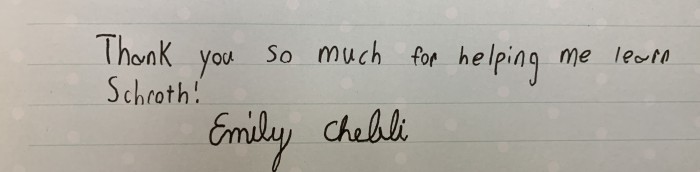 Thank you so much for helping me learn
Schroth!
Emily